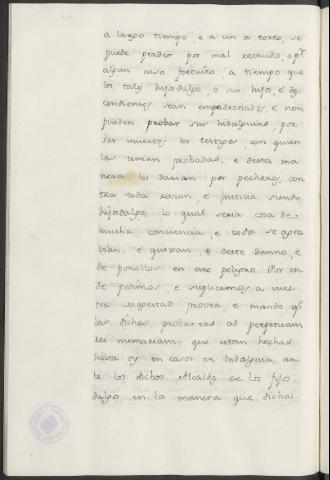 a largo tiempo, e a un a corto, se
puede perder por mal recaudo, o pr
algun caso fortuito, a tiempo que
los tales hijosdalgo, o sus hijos, e de
cendientes sean empadronados, e non
pueden probar sus hidalguias, por
ser muertos los testigos, con quien
las tenian probadas, e desta ma
nera los darian por pecheros, con
tra toda razon, e Justicia, siendo
hijosdalgo, lo qual seria cosa de
mucha conciencia, e todos se agra
vian, e quexan, de este danno, e
de ponellos en este peligro. Por en
de pedimos, e suplicamos a vues
tra Magestad provea, e mande qe
las dichas probanzas ad perpetuam
rei memoriam, que estan hechas
hasta oy en caso de hidalguia, an
te los dichos Alcaldes de los fijos
dalgo, en la manera que dicha